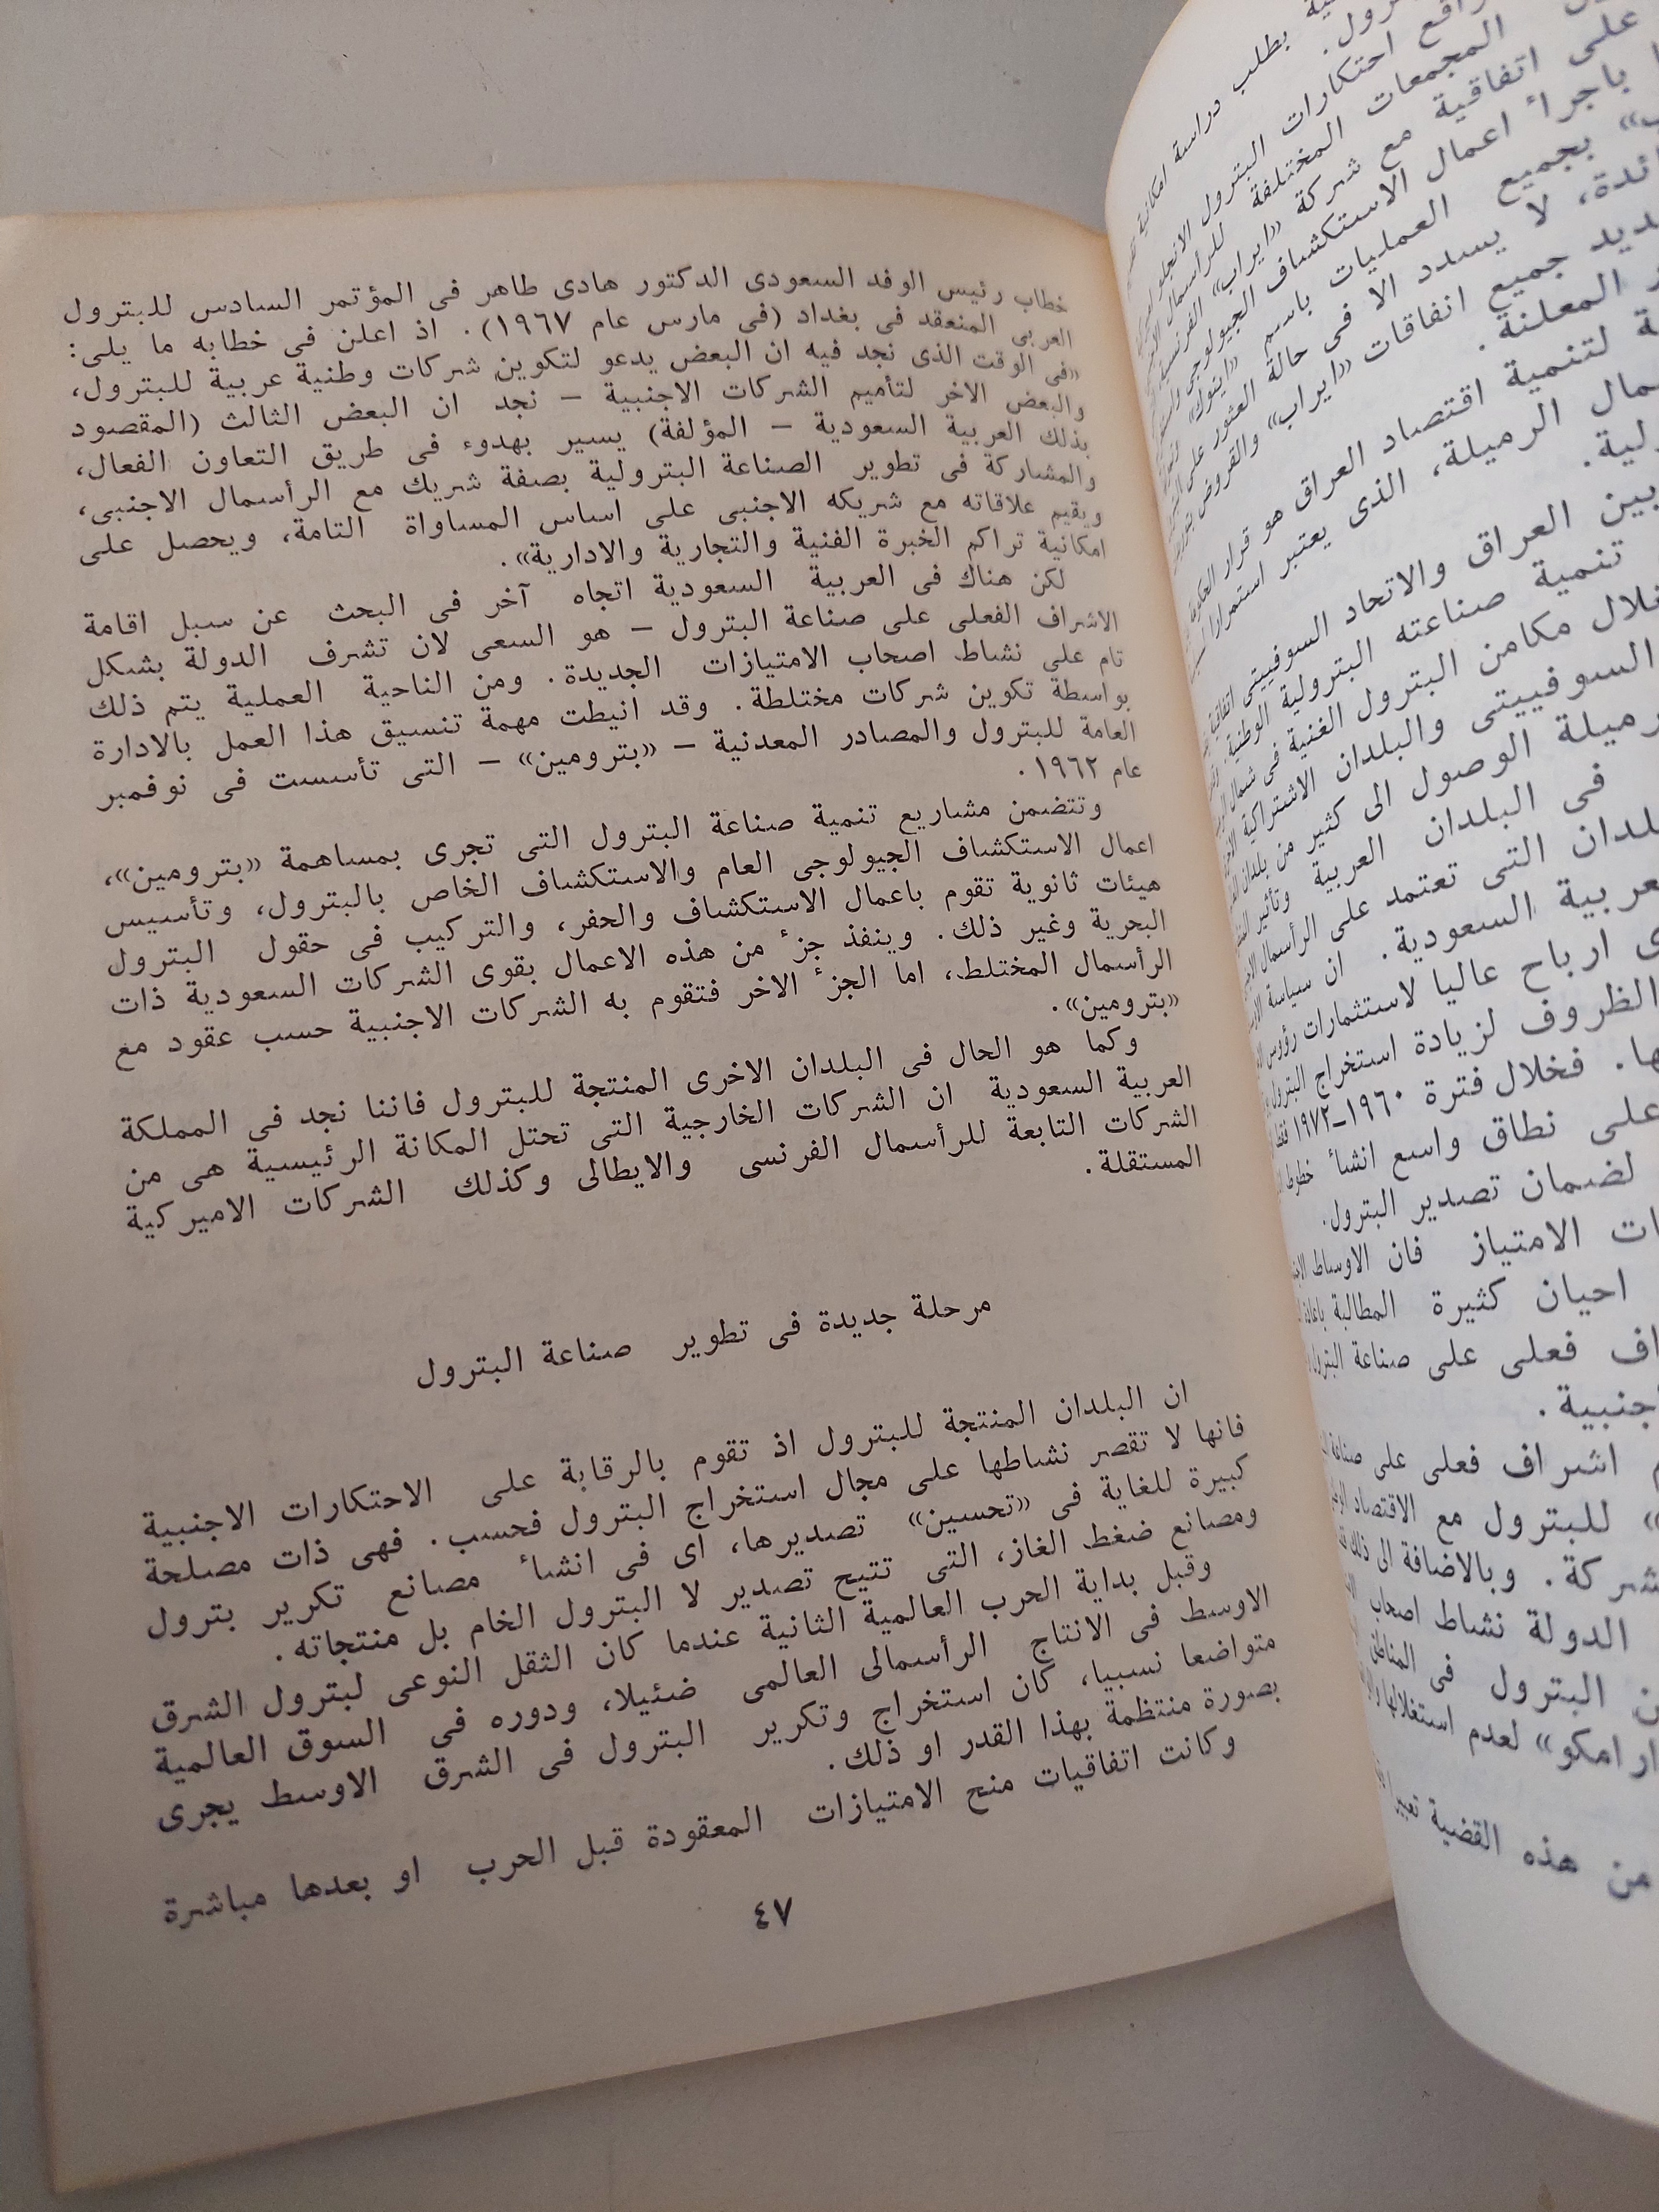 بطلب دراسة امكانية
احتكارات البترول
المجمعات المختلفة
على اتفاقية مع شركة «ايراب»
باجراء اعمال الاستكشاف الجيولوجى
بجميع العمليات باسم
لا يسدد الا فى حالة العثور على
جميع اتفاقات «ايراب» والقروض
المعلنة.
لتنمية اقتصاد العراق هو قرار
الرميلة، الذى يعتبر استمرارا
بين العراق والاتحاد السوفييتى
تنمية صناعته البترولية الوطنية.
مكامن البترول الغنية فى شمال
السوفييتى والبلدان الاشتراكية
الوصول الى كثير من بلدان
فى البلدان العربية وتأثير
التى تعتمد على الرأسمال
السعودية. ان سياسة
ارباح عاليا لاستثمارات رؤوس
الظروف لزيادة استخراج البترول
فخلال فترة ١٩٦٠–١٩٧٢
على نطاق واسع انشاء خطوط
لضمان تصدير البترول.
الامتياز فان الاوساط
احيان كثيرة المطالبة
فعلى على صناعة البترول
اشراف فعلى على
للبترول مع الاقتصاد
وبالاضافة الى ذلك
الدولة نشاط اصحاب
البترول فى المناطق
لعدم استغلالها
من هذه القضية
خطاب رئيس الوفد السعودى الدكتور هادى طاهر فى المؤتمر السادس للبترول
العربى المنعقد فى بغداد (فى مارس عام ١٩٦٧). اذ اعلن فى خطابه ما يلى:
«فى الوقت الذى نجد فيه ان البعض يدعو لتكوين شركات وطنية عربية للبترول،
والبعض الاخر لتأميم الشركات الاجنبية – نجد ان البعض الثالث (المقصود
بذلك العربية السعودية – المؤلفة) يسير بهدوء فى طريق التعاون الفعال،
والمشاركة فى تطوير الصناعة البترولية بصفة شريك مع الرأسمال الاجنبى،
ويقيم علاقاته مع شريكه الاجنبى على اساس المساواة التامة، ويحصل على
امكانية تراكم الخبرة الفنية والتجارية والادارية».
لكن هناك فى العربية السعودية اتجاه آخر فى البحث عن سبل اقامة
الاشراف الفعلى على صناعة البترول – هو السعى لان تشرف الدولة بشكل
تام على نشاط اصحاب الامتيازات الجديدة. ومن الناحية العملية يتم ذلك
بواسطة تكوين شركات مختلطة. وقد انيطت مهمة تنسيق هذا العمل بالادارة
العامة للبترول والمصادر المعدنية – «بترومين» – التى تأسست فى نوفمبر
عام ١٩٦٢.
وتتضمن مشاريع تنمية صناعة البترول التى تجرى بمساهمة «بترومين»،
اعمال الاستكشاف الجيولوجى العام والاستكشاف الخاص بالبترول، وتأسيس
هيئات ثانوية تقوم باعمال الاستكشاف والحفر، والتركيب فى حقول البترول
البحرية وغير ذلك. وينفذ جزء من هذه الاعمال بقوى الشركات السعودية ذات
الرأسمال المختلط، اما الجزء الاخر فتقوم به الشركات الاجنبية حسب عقود مع
«بترومين».
وكما هو الحال فى البلدان الاخرى المنتجة للبترول فاننا نجد فى المملكة
العربية السعودية ان الشركات الخارجية التى تحتل المكانة الرئيسية هى من
الشركات التابعة للرأسمال الفرنسى والايطالى وكذلك الشركات الاميركية
المستقلة.
مرحلة جديدة فى تطوير صناعة البترول
ان البلدان المنتجة للبترول اذ تقوم بالرقابة على الاحتكارات الاجنبية
فانها لا تقصر نشاطها على مجال استخراج البترول فحسب. فهى ذات مصلحة
كبيرة للغاية فى «تحسين» تصديرها، اى فى انشاء مصانع تكرير بترول
ومصانع ضغط الغاز، التى تتيح تصدير لا البترول الخام بل منتجاته.
وقبل بداية الحرب العالمية الثانية عندما كان الثقل النوعى لبترول الشرق
الاوسط فى الانتاج الرأسمالى العالمى ضئيلا، ودوره فى السوق العالمية
متواضعا نسبيا، كان استخراج وتكرير البترول فى الشرق الاوسط يجرى
بصورة منتظمة بهذا القدر او ذلك.
وكانت اتفاقيات منح الامتيازات المعقودة قبل الحرب او بعدها مباشرة
٤٧